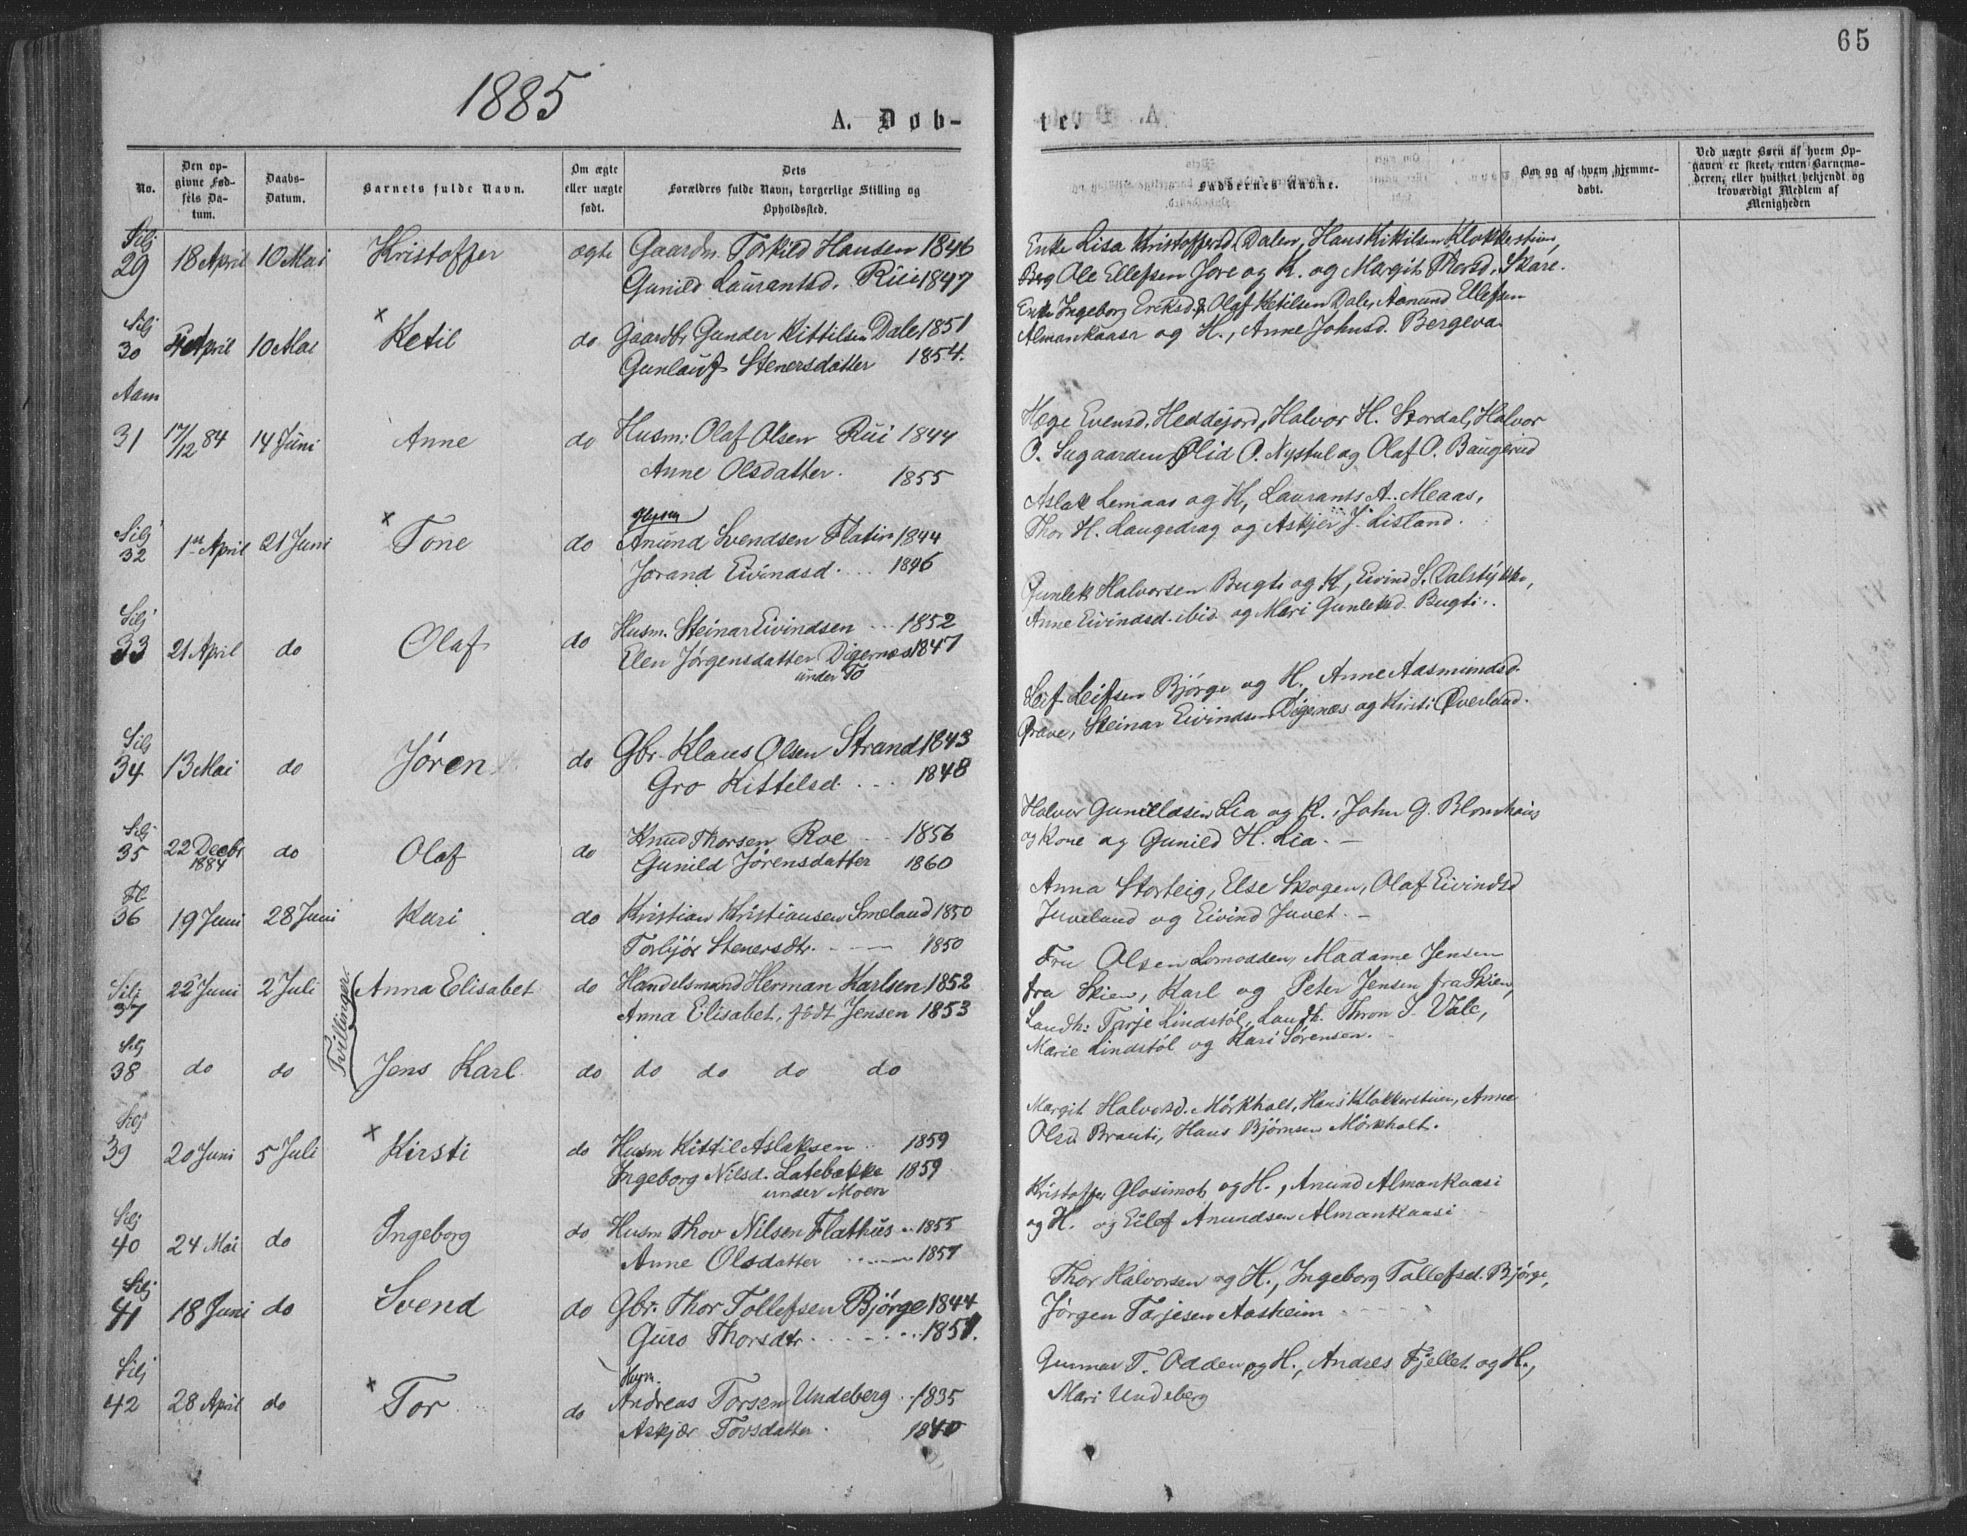 1885
65
A. Døb-
te.
No.
Den op-
givne Fød-
sels Da-
tum.
Daabs-
Datum.
Barnets fulde Navn.
Om ægte
eller uægte
født.
Dets
Forældres fulde Navn, borgerlige Stilling og
Opholdssted.
Faddernes Navne.
Om og af hvem hjemme-
døbt.
Ved uægte Børn af hvem Op-
gaven er skeet, enten Barnemo-
deren, eller hvilket bekjendt og
troværdigt Medlem af
Menigheden
Silj
29 18 April 10 Mai Kristoffer ægte Gaardm. Torkild Hansen 1846
Gunild Laurantsd. Rui 1847
Enke Lisa Kristoffersd. Dalen, Hans Kikilsen Klokkerstuen,
Ole Ellefsen Jore og K. og Margit Thorsd. Skare.
Silj
30 April 10 Mai × Ketil do Gaardbr. Gunder Kittilsen Dale 1851
Gunlauf Stenersdatter 1854.
Enke Ingeborg Eriksd. & Olaf Ketilsen Dale, Aanund Ellefsen
Almankaasa og H., Anne Johnsd. Bergeva
Aam
31 17/12 84 14 Juni Anne do Husm: Olaf Olsen Rui 1844
Anne Olsdatter. 1855
Hæge Evensd. Heddejord, Halvor H. Stordal, Halvor
O. Sugaarden Ølid O. Nystul og Olaf O. Baugerud
Silj
32 1st April 21 Juni × Tone do Anund Svendsen Flatin 1844
Jorand Eivindsd. .... 1846
Aslak Lemaas og K, Laurants A. Meaas,
Thor H. Laugedrag og Askjer J. Lisland.
Silj
33 21 April do Olaf do Husm. Steinar Eivindsen ... 1852
Elen Jørgensdatter Digernæs 1847
under To
Gunlek Halvorsen Bugti og K, Eivind S. Dalstykke,
Anne Eivindsd. ibid. og Mari Gunleksd. Bugti.
Silj
34 13 Mai do Jøren do Gbr. Klaus Olsen Strand 1843
Gro Kittelsd. ... 1848
Leif Leifsen Bjørge og H. Anne Aasmundsd.
Græve, Steinar Eivindsen Digernæs og Kirsti Øverland.
Silj
35 22 Decbr 1884 do Olaf do Knud Thorsen Roe 1856
Gunild Jørensdatter 1860
Halvor Gunillasen Lia og K., John G. Blomhaug
og Kone og Gunild H. Lia. —
Fl
36 19 Juni 28 Juni Kari do Kristian Kristiansen Smeland 1850
Torbjør Stenersdtr. — 1850
Anna Storteig, Else Skogen, Olaf Eivindsd
Juveland og Eivind Juvet. —
Silj
37 22 Juni 2 Juli Tvillinger. Anna Elisabet do Handelsmand Herman Karlsen 1852
Anna Elisabet, født Jensen 1853
Fru Olsen Lomodden, Madame Jensen
fra Skien, Karl og Peter Jensen fra Skien,
Silj
38 do do Jens Karl do do do do do
Landh: Tarje Lindstöl, Landh. Thron J. Vale,
Marie Lindstöl og Kari Sørensen.
Silj
39 20 Juni 5 Juli × Kirsti do Husm Kittil Aslaksen 1859
Ingeborg Nilsd. Latebække 1859
under Moen
Margit Halvorsd. Mørkholt, Hans Klokkerstuen, Anne
Olsd. Brauti, Hans Bjørnsen Mørkholt.
Silj
40 24 Mai do Ingeborg do Husm Thov Nilsen Flathus .. 1855
Anne Olsdatter — 1857
Kristoffer Glosimot og H., Anund Almankaasi
og H. og Eilef Anundsen Almankaasi
Silj
41 18 Juni do Svend do Gbr. Thor Tollefsen Bjørge 1844
Guro Thorsdtr. ...... 1851.
Thor Halvorsen og H., Ingeborg Tollefsd. Bjørge,
Jørgen Tarjesen Aasheim
Silj
42 28 April do × Tor do Husm. Andreas Torsen Undeberg .. 1835
Askjær Tovsdatter. 1840
Gunnar T. Odden og H., Andres Fjellet og H.,
Mari Undeberg